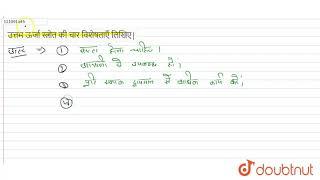 111601485
उत्तम ऊर्जा स्त्रोत की चार विशेषताएँ लिखिए|
उत्तर ⇒ ① सस्ता होना चाहिए।
② आसानी से उपलब्ध हो।
③ प्रति एकांक द्रव्यमान में अधिक कार्य करे।
④
doubtnut